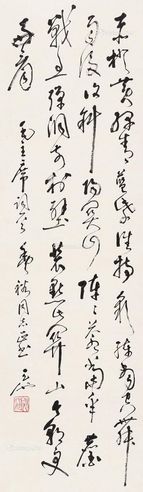 赤橙黄绿青蓝紫谁持彩练当空舞
雨后复斜阳关山阵阵苍当年鏖
战急弹洞前村壁装点此关山今朝更
好看
毛主席词 同志正